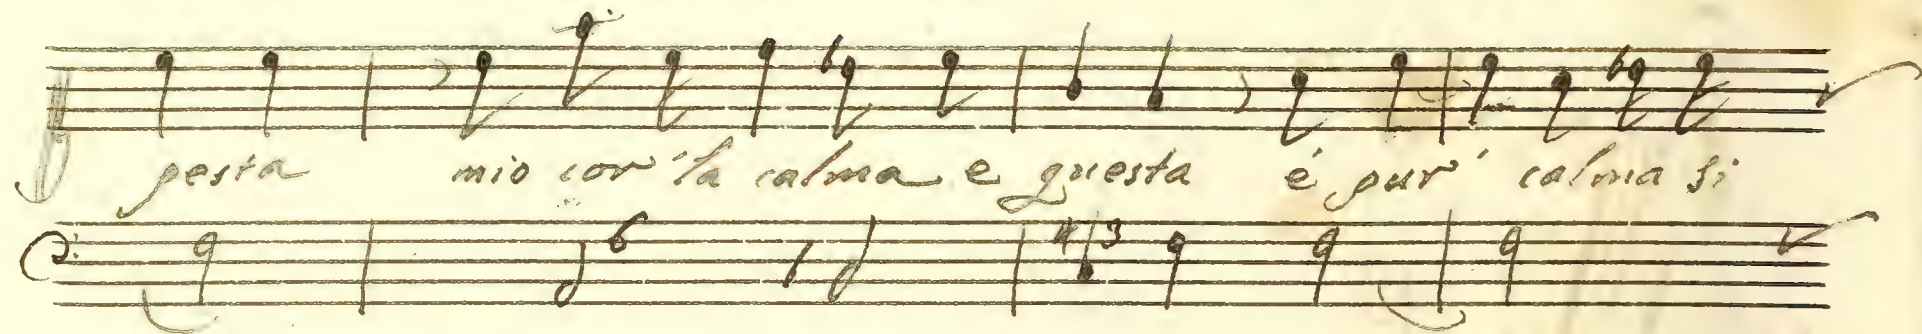 pesta mio cor' la calma e questa é pur' calma si
6
4 3